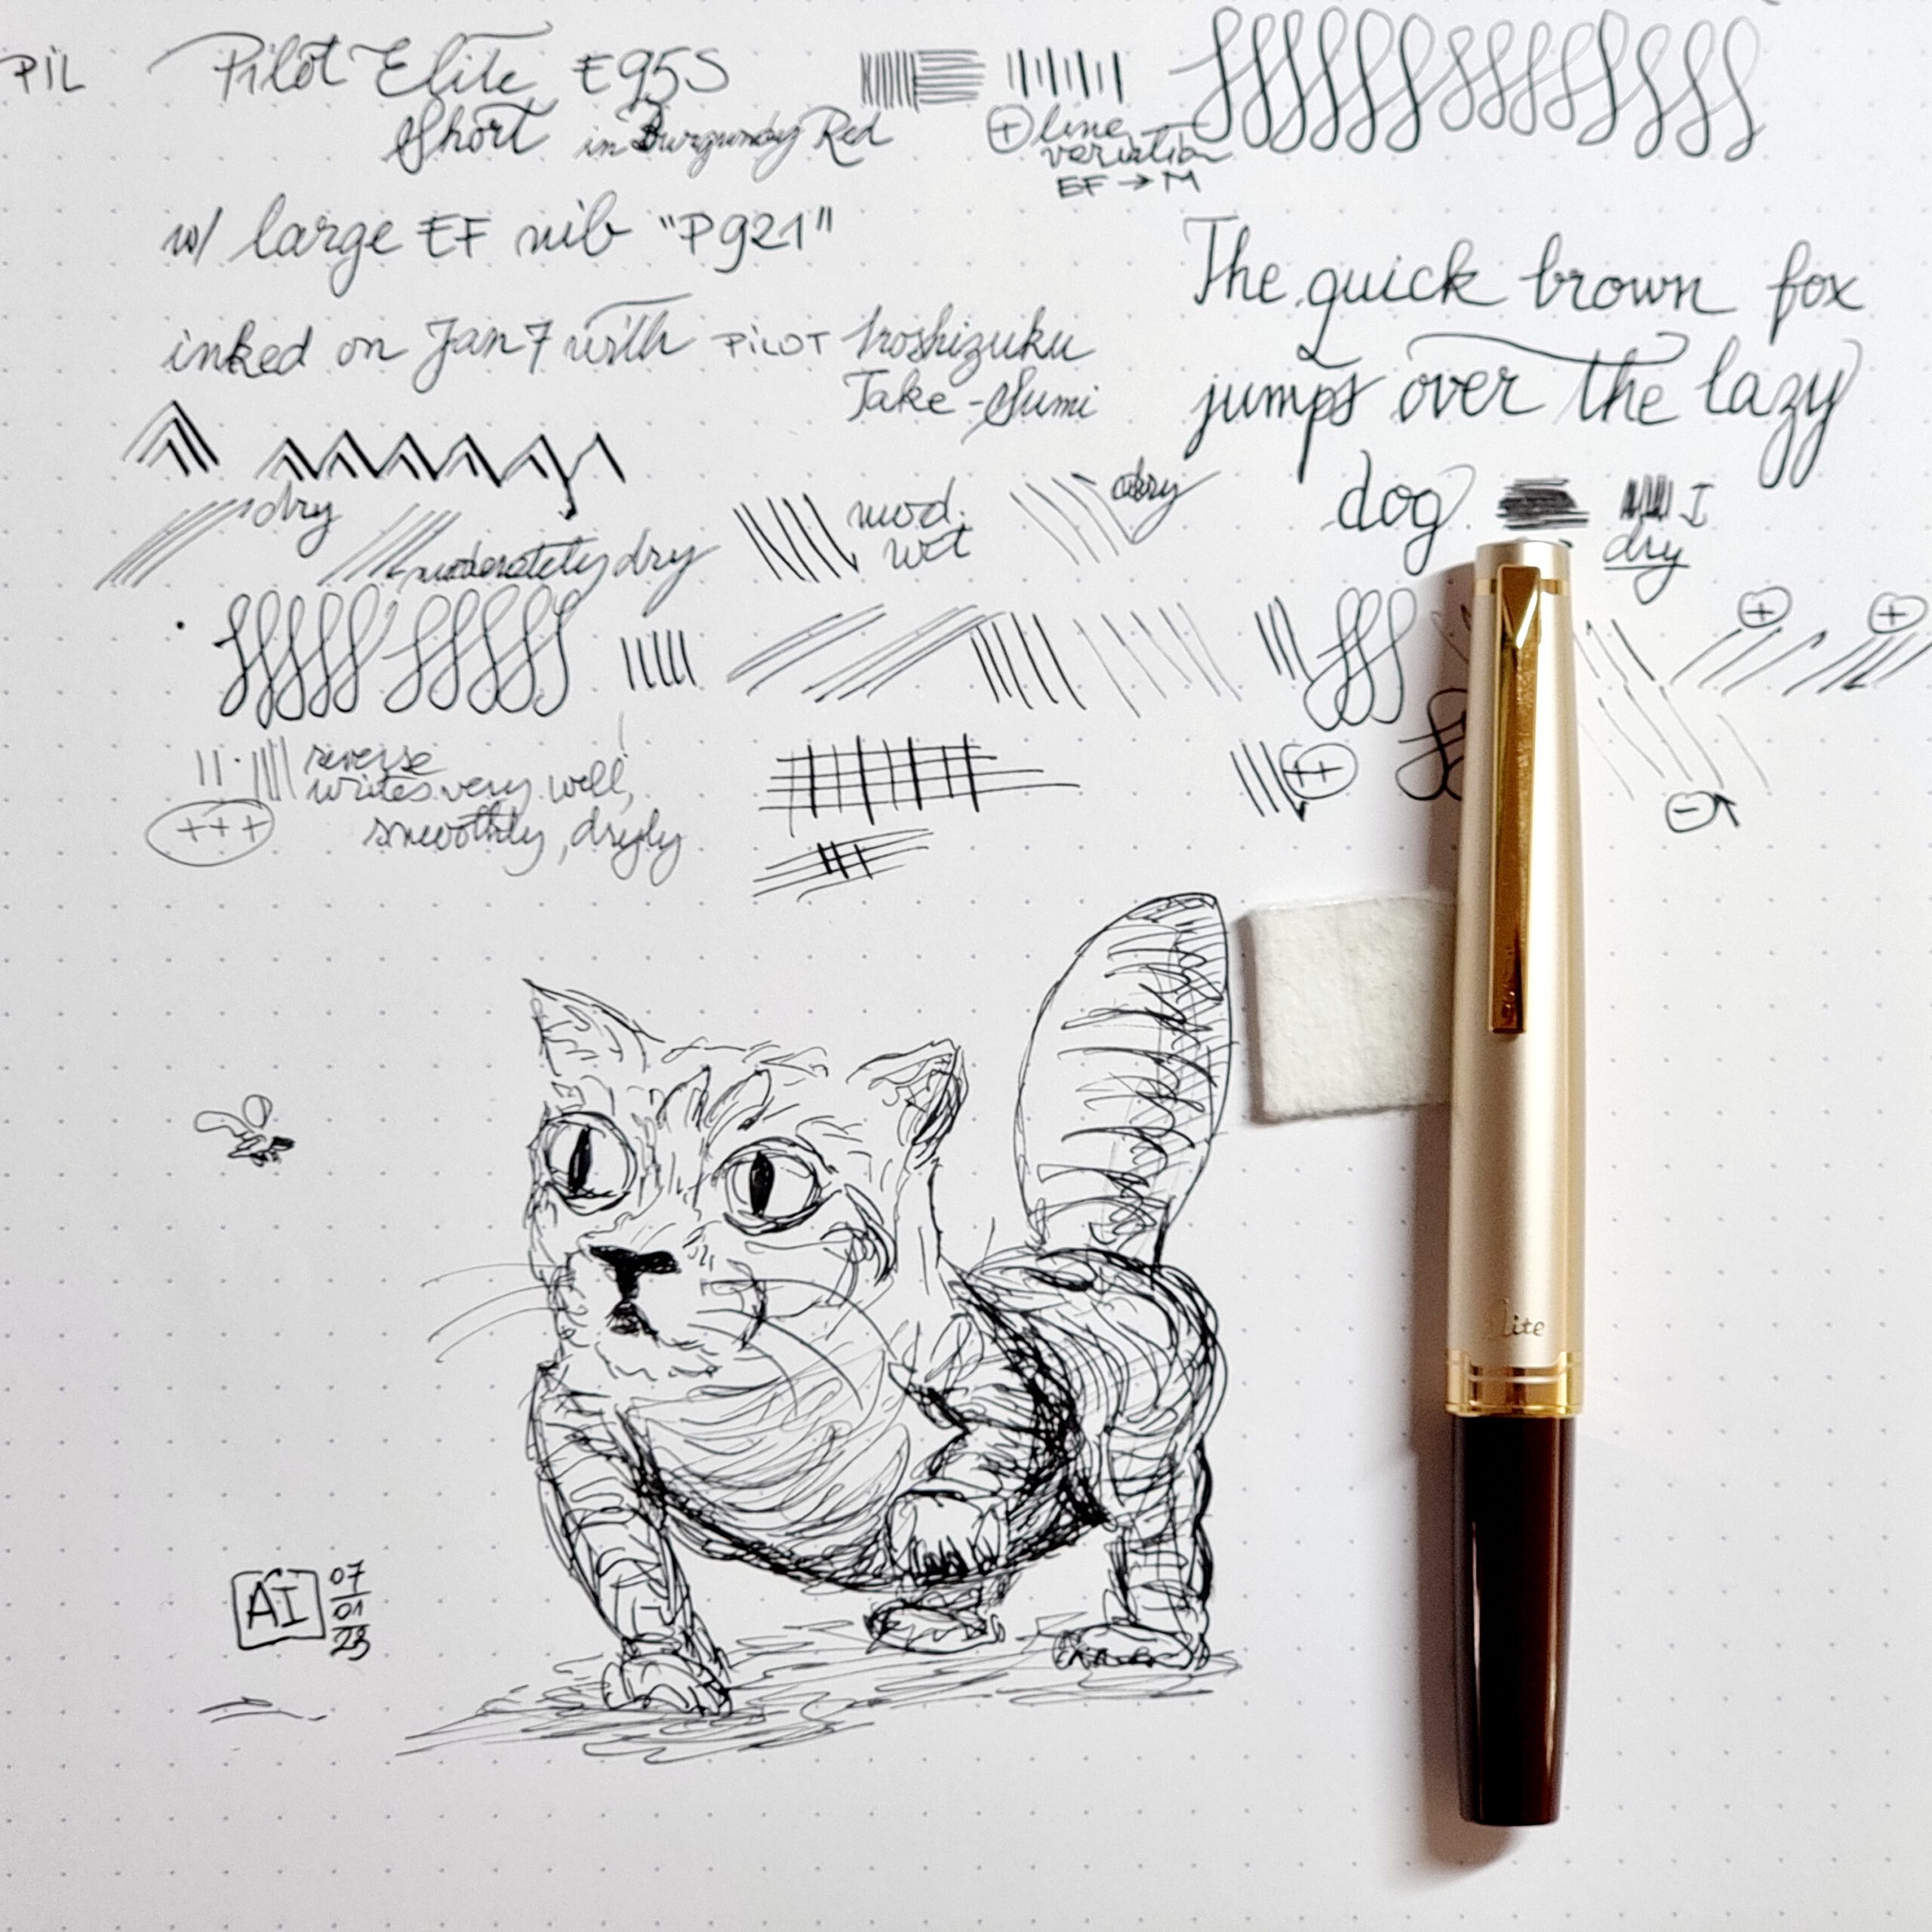 PIL
Pilot Elite E95S
Short in Burgundy Red
+ line
variation
EF → M
w/ large EF nib "P921"
inked on Jan 7 with PILOT Iroshizuku
Take-Sumi
The quick brown fox
jumps over the lazy
dog
dry
dry
moderately dry
mod.
wet
dry
+
+
reverse
writes very well,
smoothly, dryly
+++
++
-
Elite
AI
07
01
23